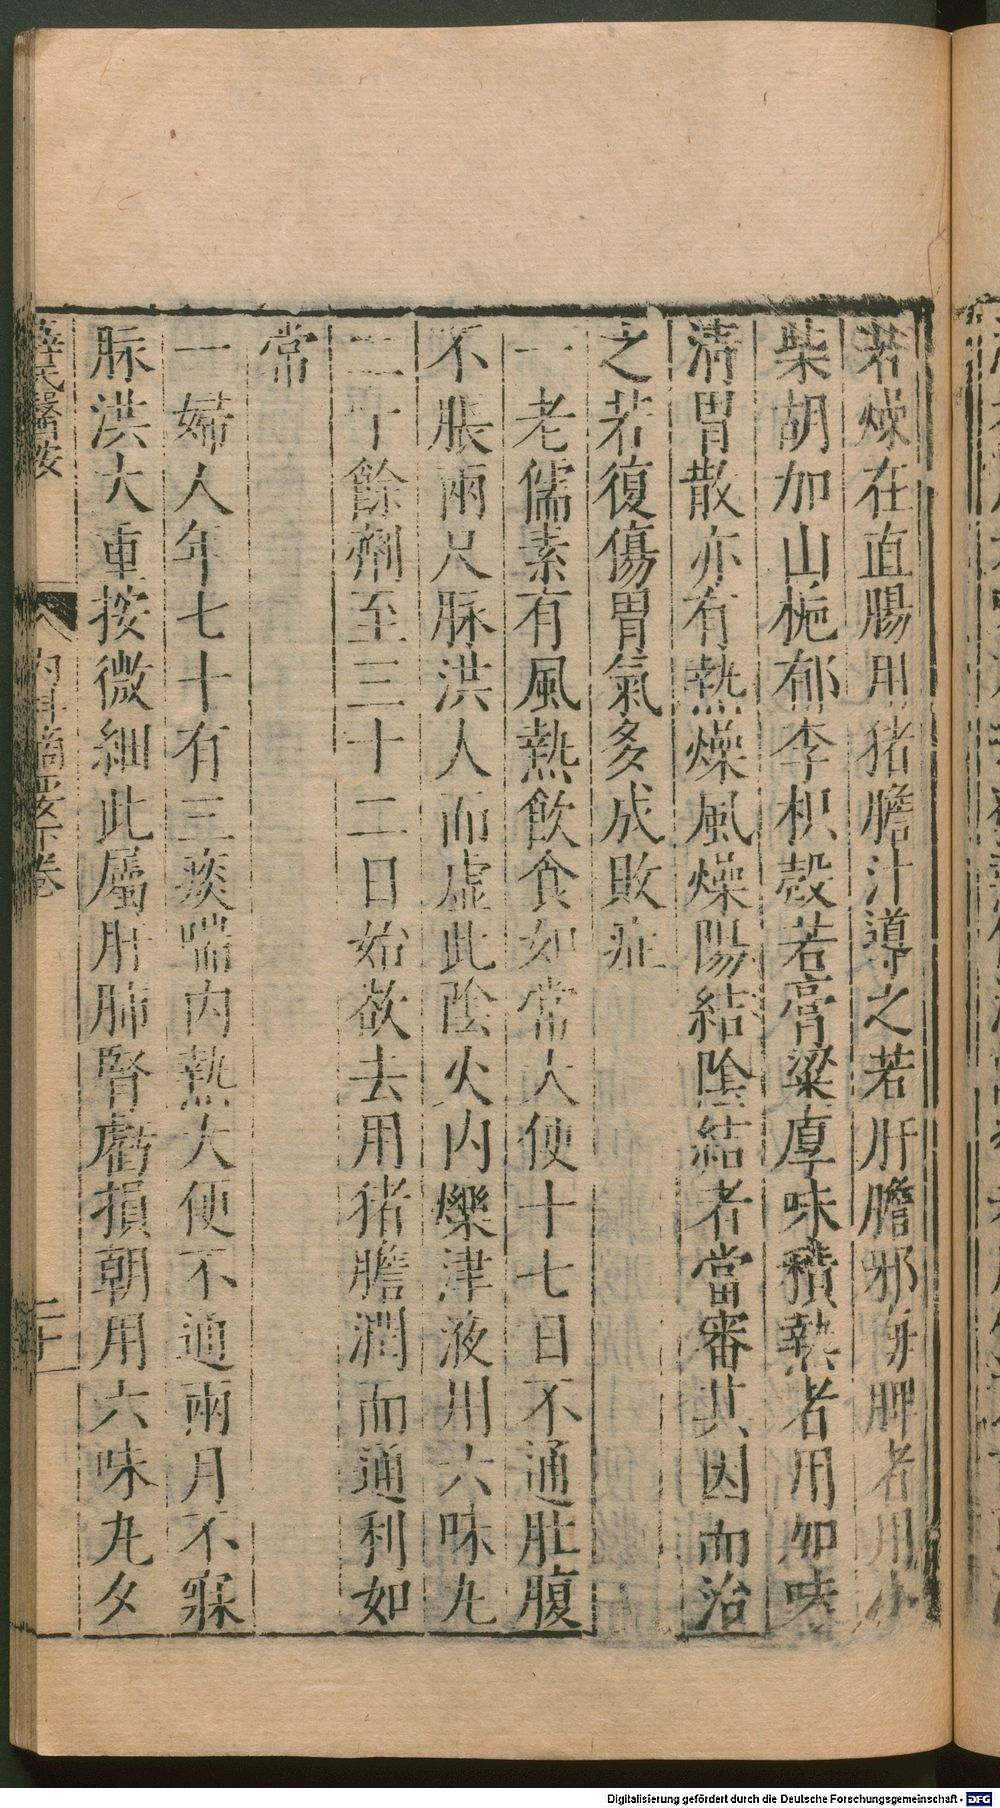 若燥在直腸用猪膽汁導之若肝膽邪侮脾者用小
柴胡加山梔郁李枳殼若膏粱厚味積熱者用加味
清胃散亦有熱燥風燥陽結陰結者當審其因而治
之若復傷胃氣多成敗症
一老儒素有風熱飲食如常大便十七日不通肚腹
不脹兩尺脉洪大而虛此陰火內爍津液用六味丸
二十餘劑至三十二日始欲去用猪膽潤而通利如
常
一婦人年七十有三痰喘內熱大便不通兩月不寐
脉洪大重按微細此屬肝肺腎虧損朝用六味丸夕
薛氏醫按
內科摘要下卷
二十
Digitalisierung gefördert durch die Deutsche Forschungsgemeinschaft - DFG